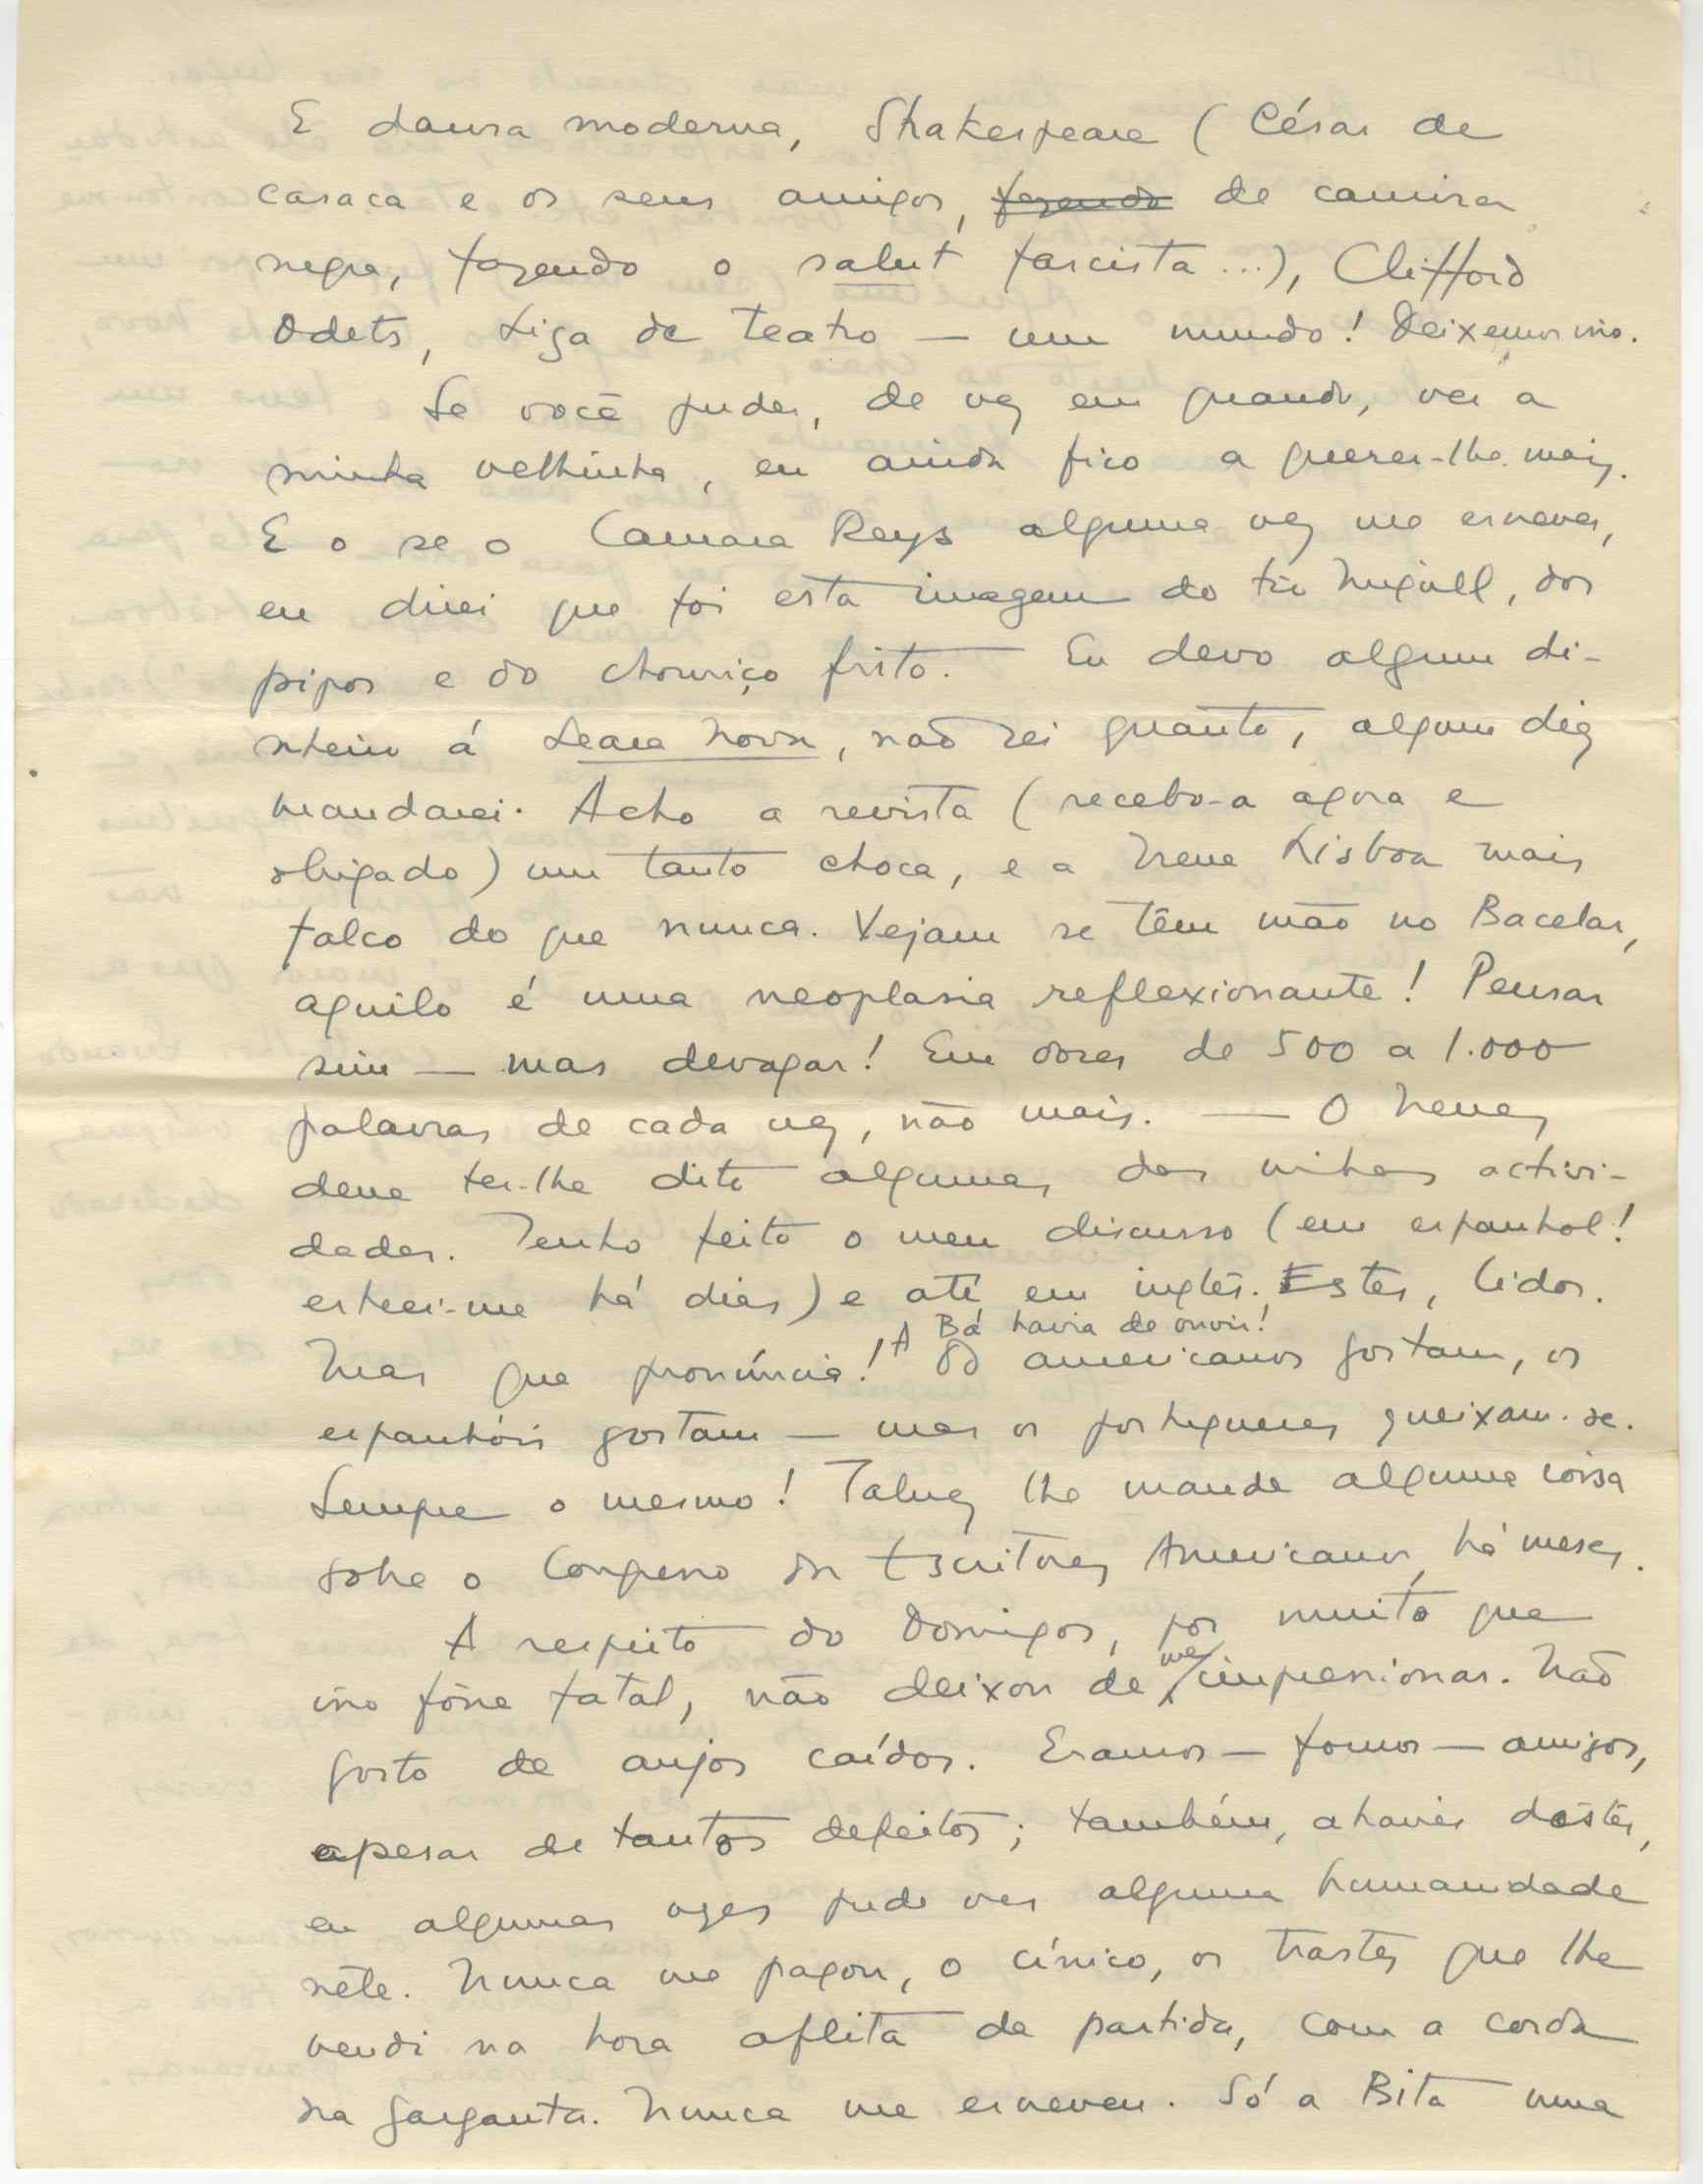 E dansa moderna, Shakespeare (César de
casaca e os seus amigos, fazendo de camisa
negra, fazendo o salut fascista...), Clifford
Odets, Liga de Teatro — um mundo! Deixemos isso.
Se você puder, de vez em quando, ver a
minha velhinha, eu ainda fico a querer-lhe mais.
E o se o Camara Reys alguma vez me escrever,
eu direi que foi esta imagem do tio Miguel, dos
pipos e do chouriço frito. Eu devo algum di-
nheiro á Seara Nova, não sei quanto, algum dia
mandarei. Acho a revista (recebo-a agora e
obrigado) um tanto choca, e a Irene Lisboa mais
falco do que nunca. Vejam se têm mão no Bacelar,
aquilo é uma neoplasia reflexionante! Pensar
sim — mas devagar! Em doses de 500 a 1.000
palavras de cada vez, não mais. — O Neves
deve ter-lhe dito algumas das minhas activi-
dades. Tenho feito o meu discurso (em espanhol!
estreei-me há dias) e até em inglês. Estes, lidos.
A Bá havia de ouvir!
Mas que pronúncia! Os americanos gostam, os
espanhóis gostam — mas os portugueses queixam-se.
Sempre o mesmo! Talvez lhe mande alguma coisa
sobre o Congresso dos Escritores Americanos, há meses.
A respeito do Domingos, por muito que
isso fôsse fatal, não deixou de me impressionar. Não
gosto de anjos caídos. Eramos — fomos — amigos,
apesar de tantos defeitos; também, através dêstes,
eu algumas vezes pude ver alguma humanidade
nêle. Nunca me pagou, o cínico, os trastes que lhe
vendi na hora aflita da partida, com a corda
na garganta. Nunca me escreveu. Só a Bita uma